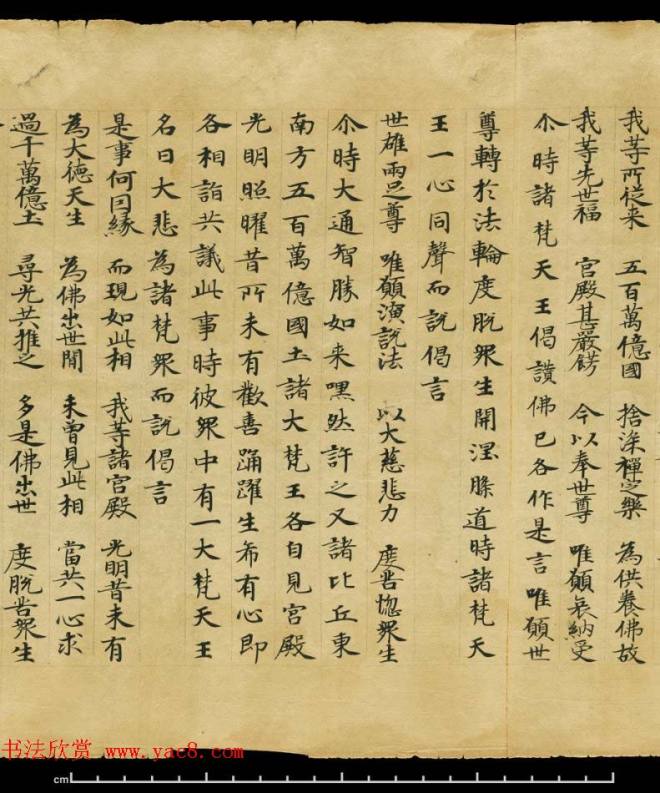 我等所従来 五百萬億國 捨深禪㝎樂 為供養佛故
我等先世福 宮殿甚嚴餝 今以奉世尊 唯願哀納受
尒時諸梵天王偈讃佛已各作是言唯願世
尊轉於法輪度脫衆生開涅槃道時諸梵天
王一心同聲而說偈言
世雄兩足尊 唯願演說法 以大慈悲力 度苦惱衆生
尒時大通智勝如来嘿然許之又諸比丘東
南方五百萬億國土諸大梵王各自見宮殿
光明照曜昔所未有歡喜踊躍生希有心即
各相詣共議此事時彼衆中有一大梵天王
名曰大悲為諸梵衆而說偈言
是事何因緣 而現如此相 我等諸宮殿 光明昔未有
為大德天生 為佛出世間 未曾見此相 當共一心求
過千萬億土 尋光共推之 多是佛出世 度脫苦衆生
书法欣赏 www.yac8.com
cm